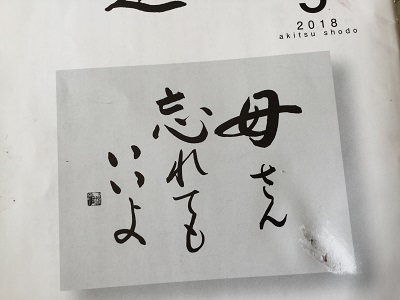 2018
akitsu shodo
母さん
忘れても
いいよ